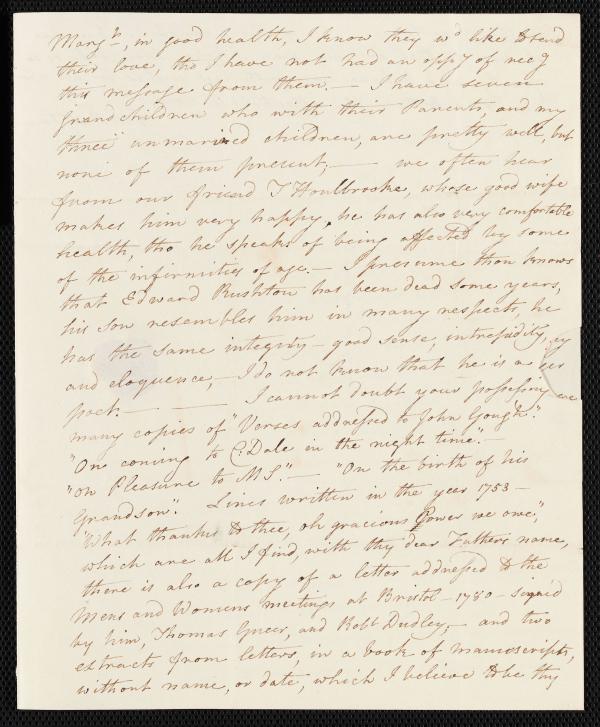 Margt, in good health, I know they wd like to send
their love, tho I have not had an oppy of recg
this message from them. — I have seven
grandchildren who with their Parents, and my
three unmarried children, are pretty well, but
none of them present; — we often hear
from our friend T Houlbrooke, whose good wife
makes him very happy, he has also very comfortable
health, tho' he speaks of being affected by some
of the infirmities of age. — I presume thou knows
that Edward Rushton has been dead some years,
his son resembles him in many respects, he
has the same integrity — good sense, intrepidity,
and eloquence, — I do not know that he is a
poet. — I cannot doubt your possessing
many copies of "Verses addressed to John Gough".
"On coming to C. Dale in the night time". —
"On Pleasure to MS". — "On the birth of his
Grandson". Lines written in the year 1753 —
"What thanks to thee, oh gracious Power we owe",
which are all I find, with thy dear Fathers name,
there is also a copy of a letter addressed to the
Mens and Womens meetings at Bristol — 1780 — signed
by him, Thomas Greer, and Robt Dudley; — and two
extracts from letters, in a book of manuscripts,
without name, or date, which I believe to be thy